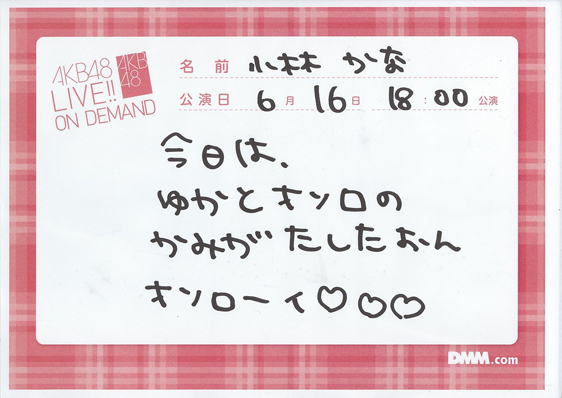 AKB48
LIVE!!
ON DEMAND
AKB
48
名前 小林 かな
公演日 6月16日 18:00公演
今日は、
ゆかとオソロの
かみがたしたおん
オソローイ♡♡♡
DMM.com